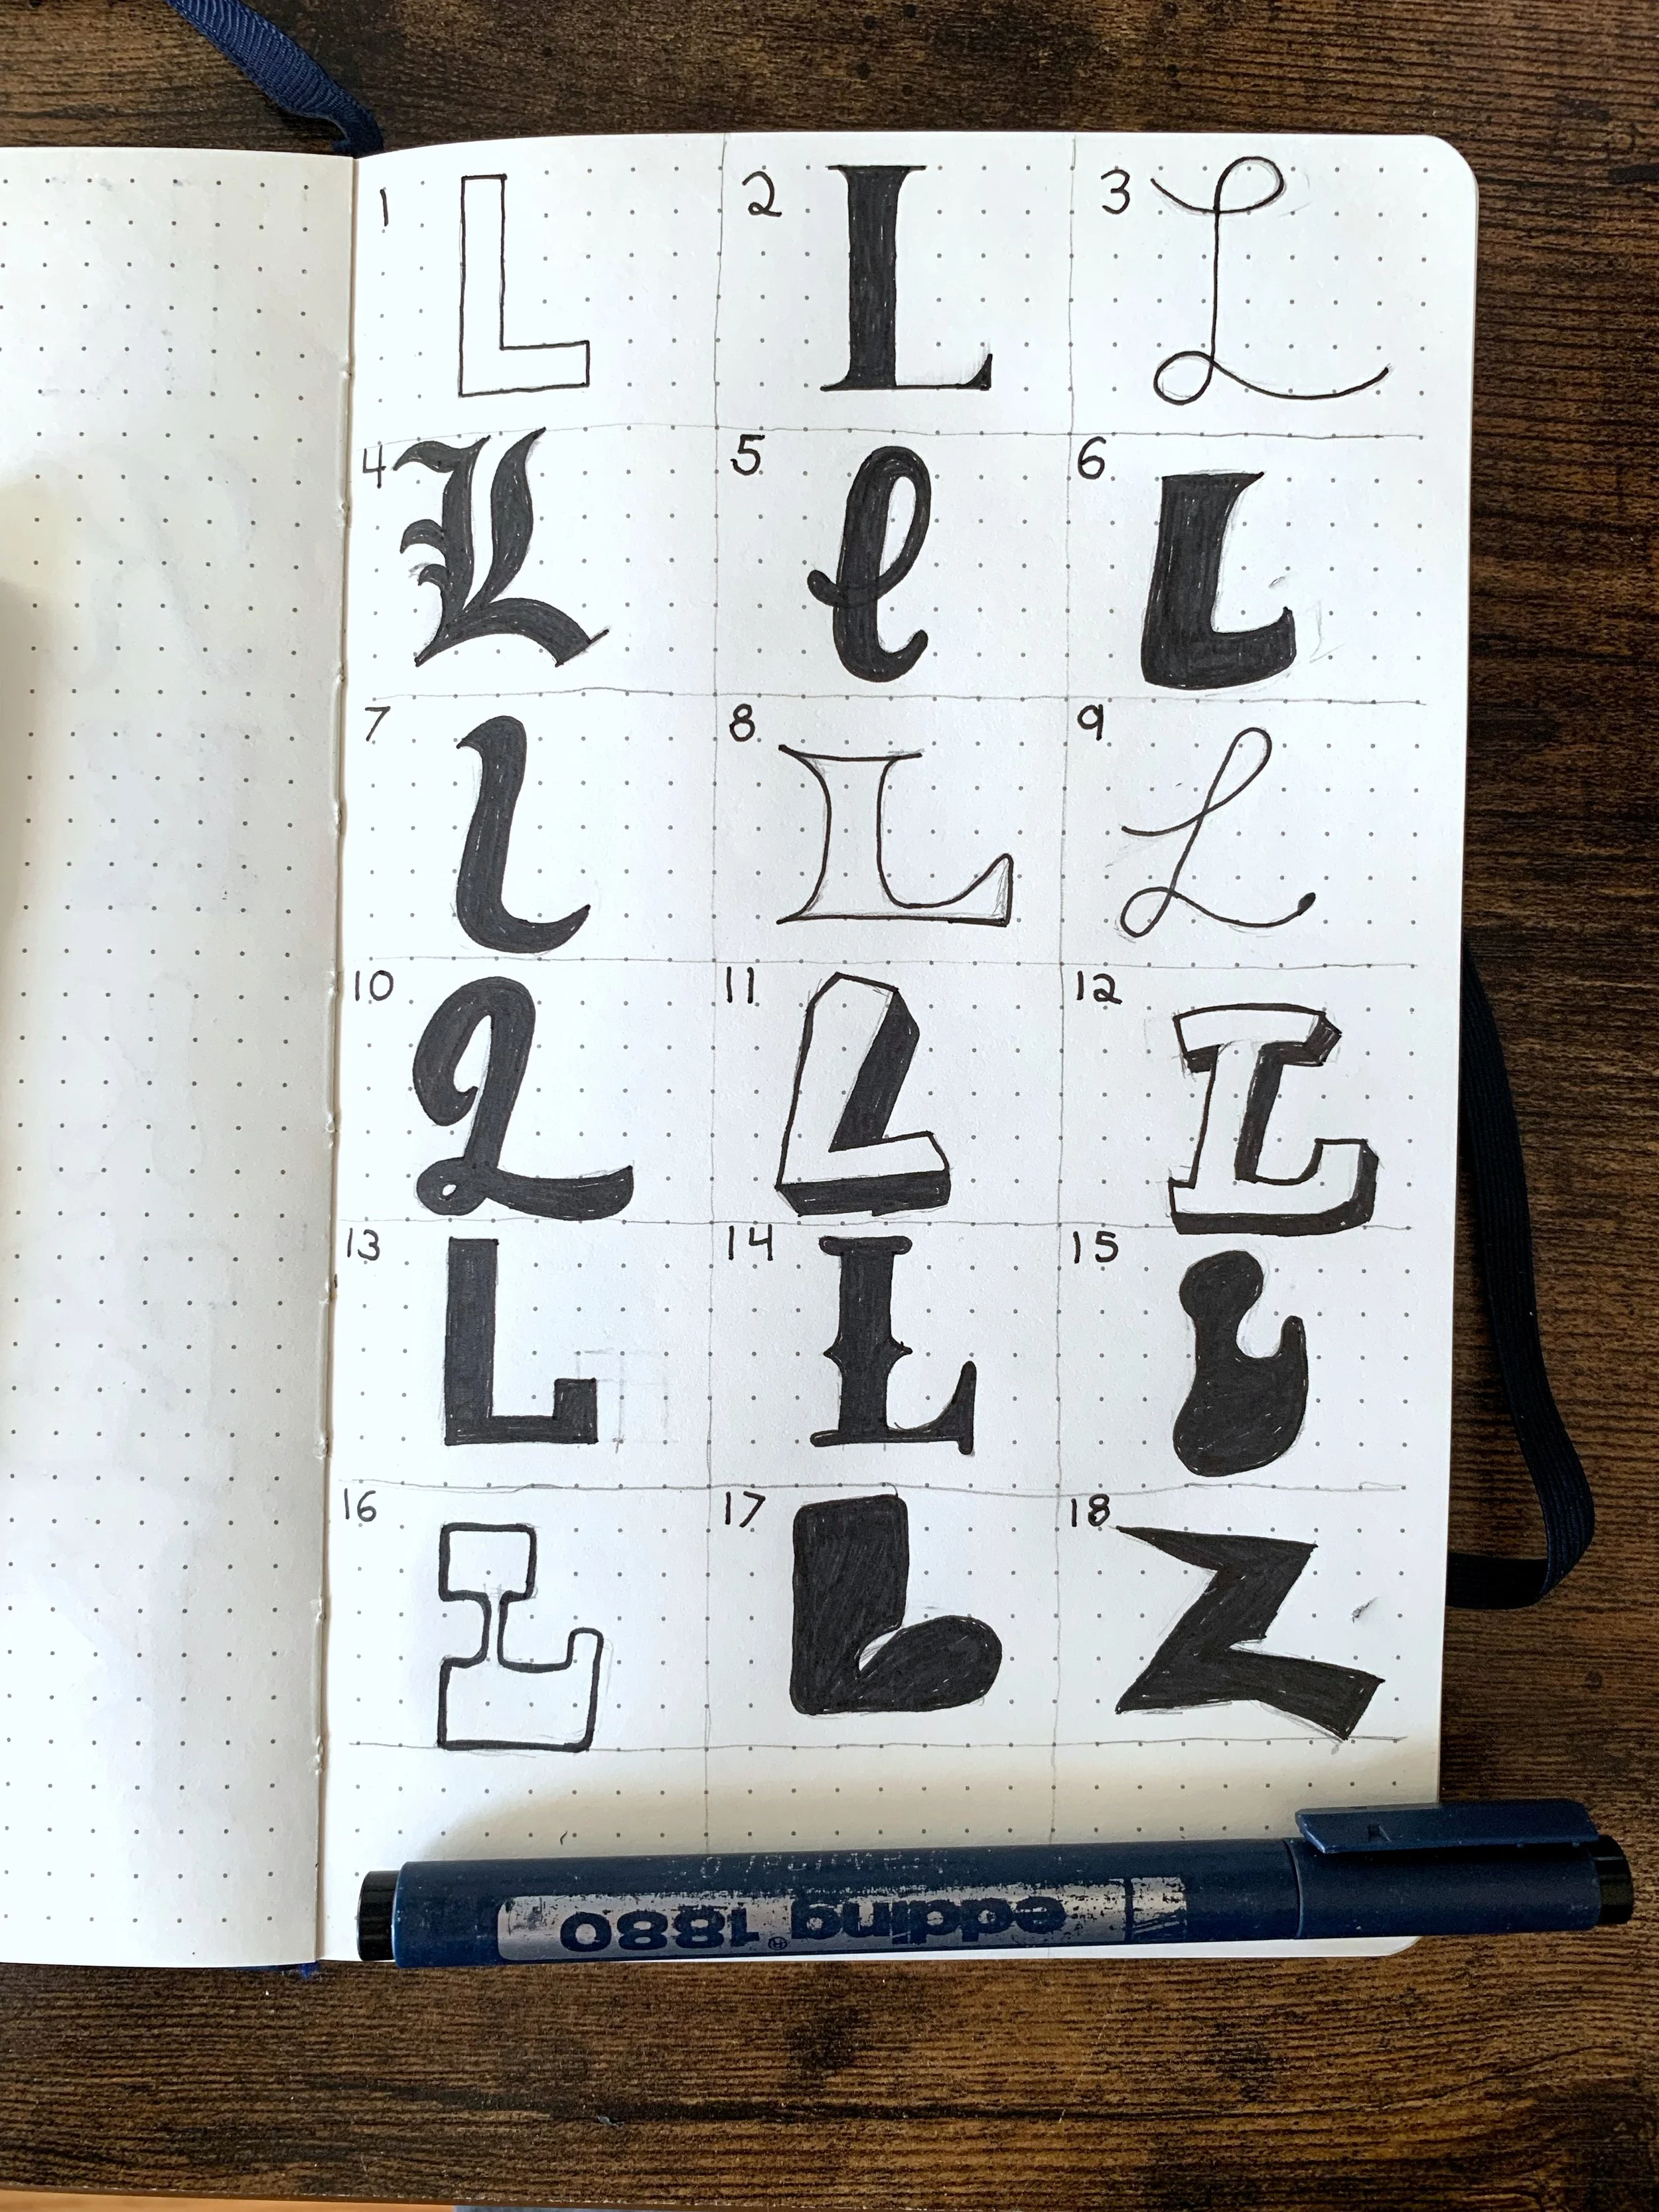 1 L 2 L 3 L
4 L 5 l 6 L
7 l 8 L 9 L
10 L 11 L 12 L
13 L 14 L 15 L
16 L 17 L 18 L
edding® 1880